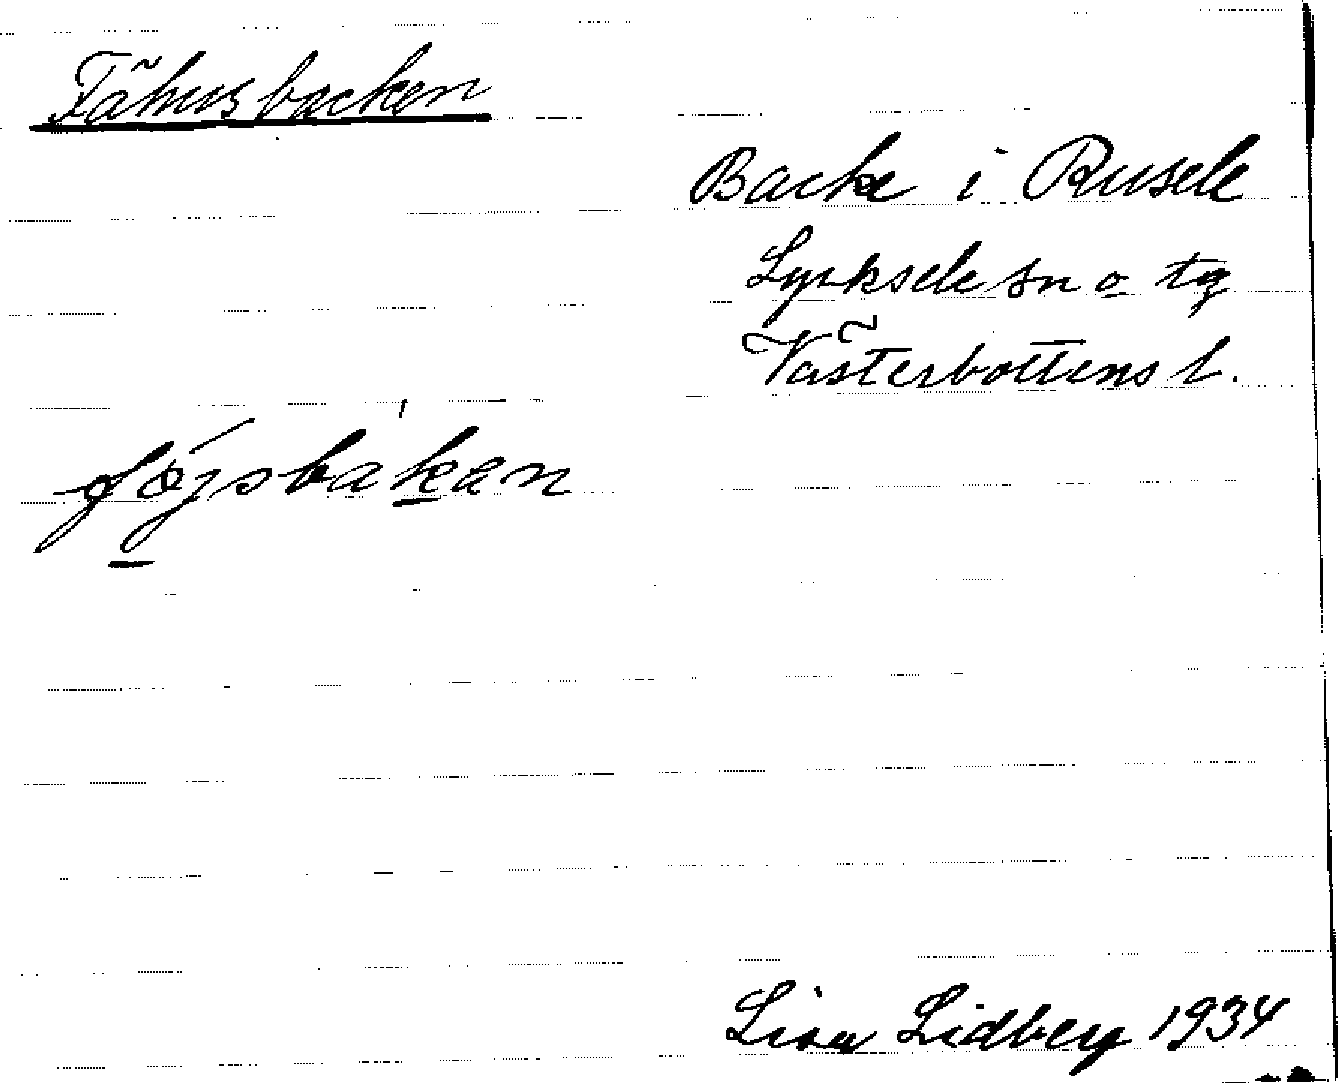 Fähusbacken
Backe i Rusele
Lycksele sn o tg
Västerbottens l.
föjsbakan
Lisa Lidberg 1934